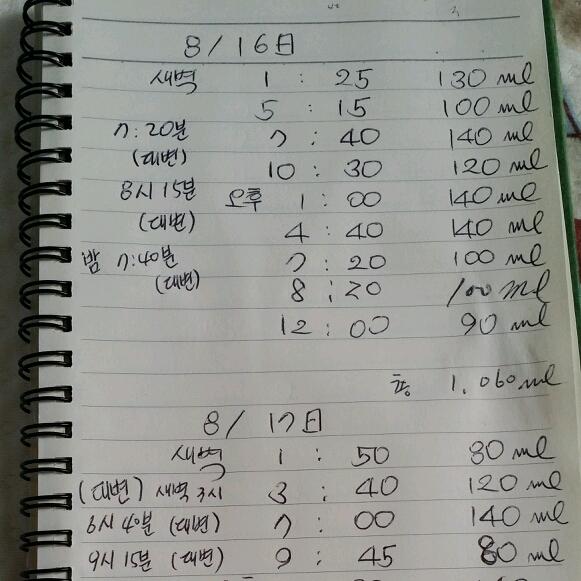 8/16日
새벽 1:25 130ml
5:15 100ml
7:20분 7:40 140ml
(대변)
10:30 120ml
8시 15분 오후 1:00 140ml
(대변)
4:40 140ml
밤 7:40분 7:20 100ml
(대변)
8:20 100ml
12:00 90ml
총 1,060ml
8/17日
새벽 1:50 80ml
(대변) 새벽 3시 3:40 120ml
6시 40분 (대변) 7:00 140ml
9시 15분 (대변) 9:45 80ml